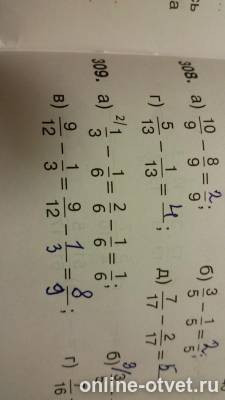 сь
а
308. а) 10/9 − 8/9 = 2/9; б) 3/5 − 1/5 = 2/5;
г) 5/13 − 1/13 = 4/; д) 7/17 − 2/17 = 5
309. а) 2/ 1/3 − 1/6 = 2/6 − 1/6 = 1/6; б) 9/ 3/5
в) 9/12 − 1/3 = 9/12 − 1/3 = 8/9; г) /16
online-otvet.ru